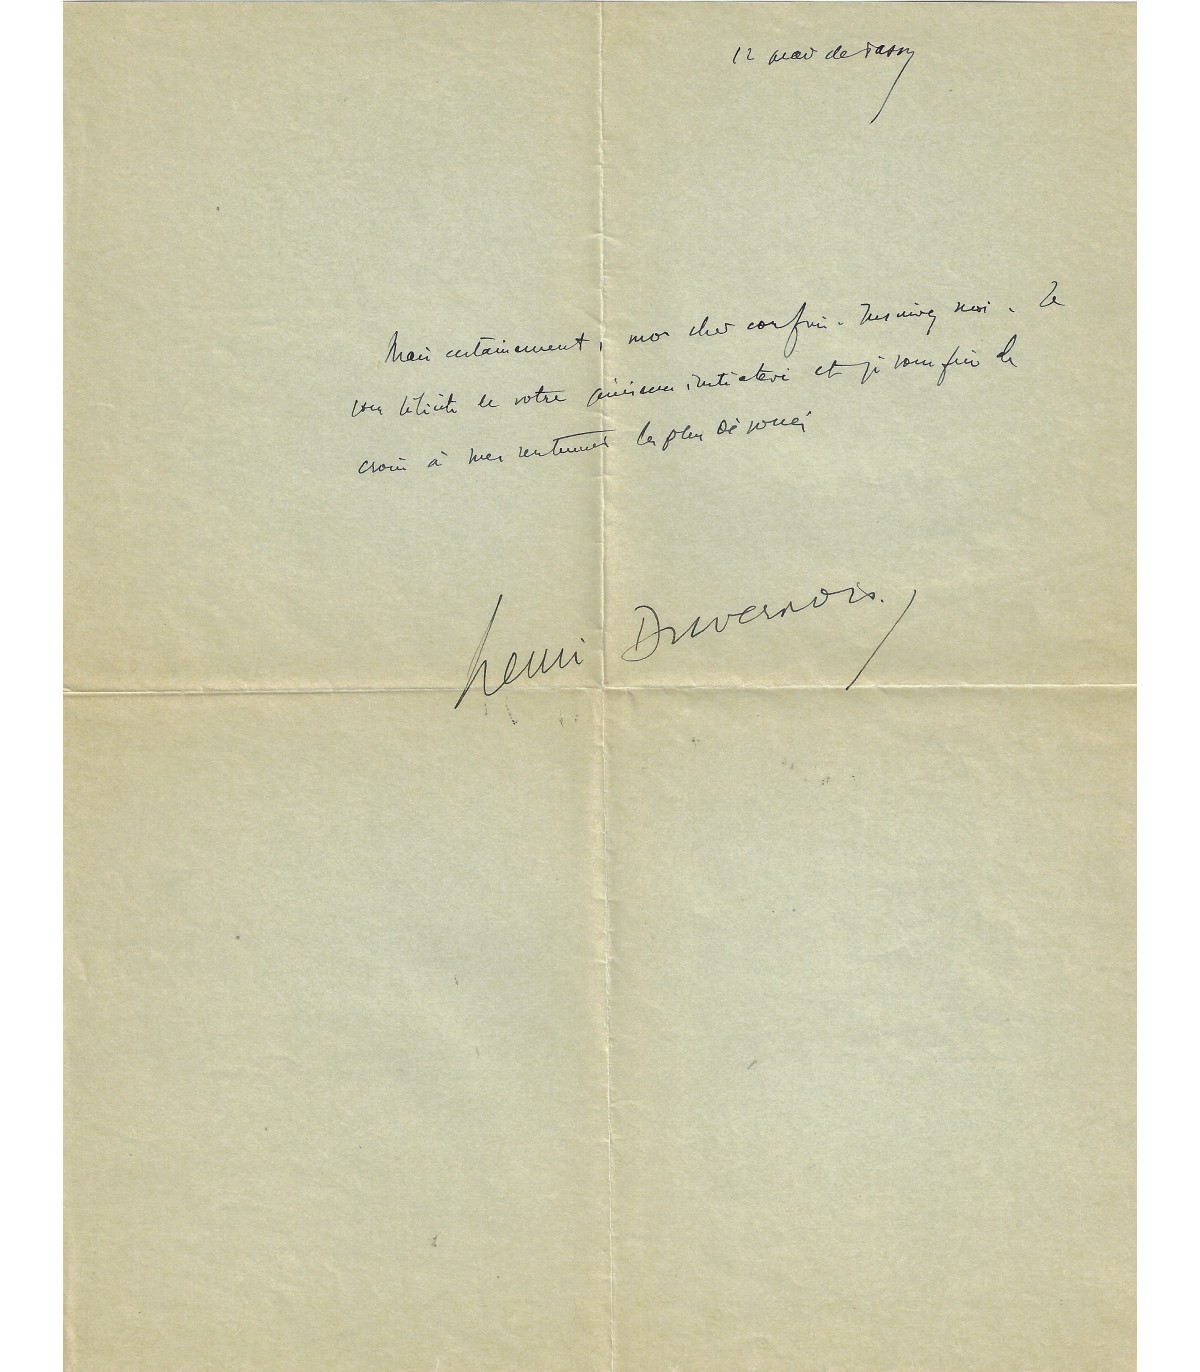 12 de Passy
Mais certainement, mon cher confrère. Inscrivez moi. Je
vous félicite de votre généreuse initiative et je vous prie de
croire à mes sentiments les plus dévoués
Henri Duvernois.